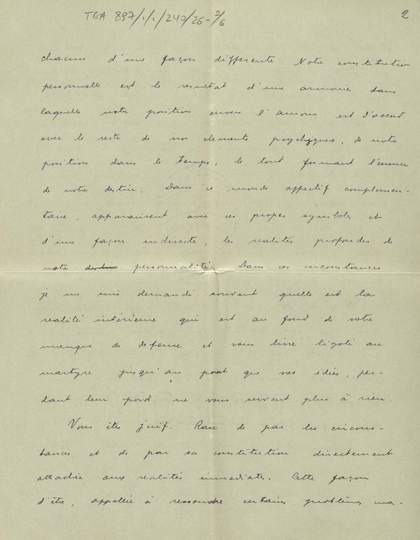 TGA 897/1/1/247/26-2/6
2
chacun d'une façon differente Notre constitution
personnelle est le resultat d'une armonie dans
laquelle notre position envers l'amour est d'accord
avec le reste de nos elements psychiques, de notre
position dans le Temps, le tout formant l'essence
de notre destin. Dans ce monde affectif complemen-
taire, apparaissent avec ses propes symboles et
d'une façon indirecte, les realités profondes de
notre personnalité. Dans ces circonstances
je me suis demandé souvent quelle est la
realité intérieure qui est au fond de votre
manque de defense et vous livre ligoté au
martyre jusqu'au point que vos idées, per-
dant leur poid ne vous servent plus à rien.
Vous êtes juif. Race de par les circons-
tances et de par sa constitution directement
attachée aux realités immediates. Cette façon
d'être, appellée à ressoudre certains problèmes ma-